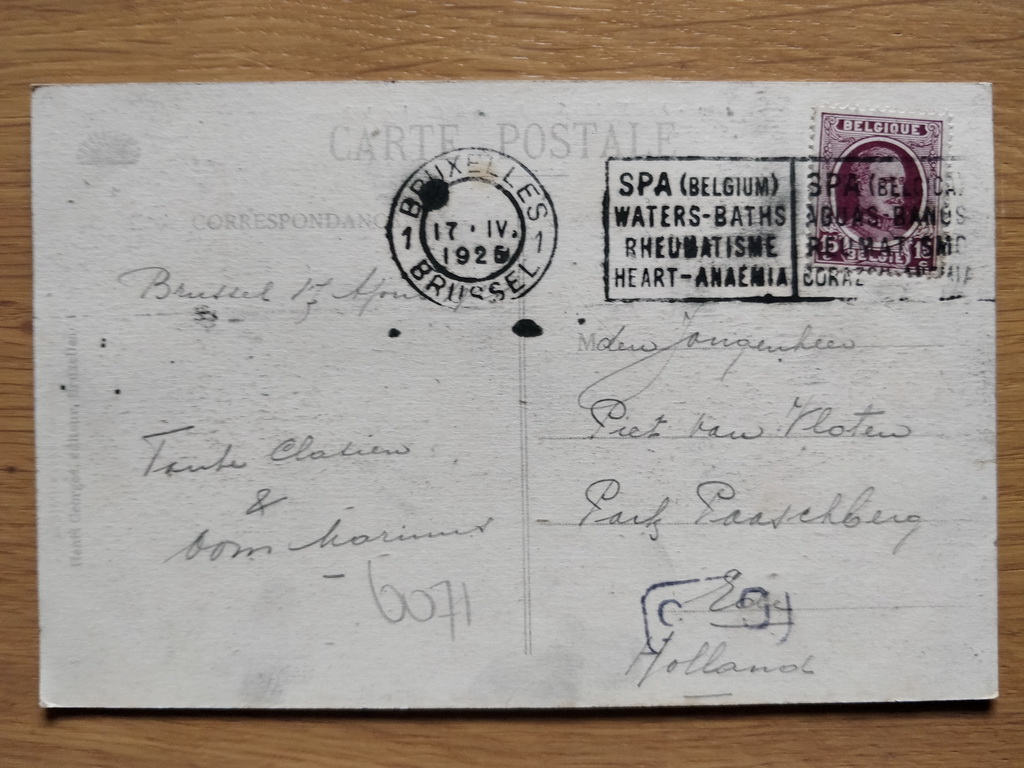 CARTE POSTALE
CORRESPONDANC
BRUXELLES
1 17 · IV. 1
1925
BRUSSEL
SPA (BELGIUM)
WATERS-BATHS
RHEUMATISME
HEART-ANAEMIA
SPA (BELGICA)
AGUAS-BANOS
REUMATISMO
CORAZ
BELGIQUE
15 BELGIË 15
Brussel 17 April
Tante
&
Oom Marinus
6071
M den Jongenheer
Piet van Vloten
Park Paaschberg
Ede
Holland
Henri Georges, éditeur, Bruxelles